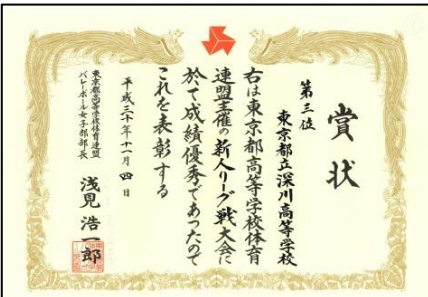 賞状
第三位
東京都立深川高等学校
右は東京都高等学校体育
連盟主催の新人リーグ戦大会に
於て成績優秀であつたので
これを表彰する
平成三十年十一月四日
東京都高等学校体育連盟
バレーボール女子部部長
浅見浩一郎